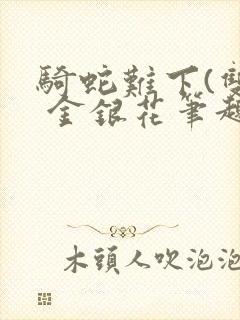 騎蛇難下(雙
金銀花筆趣
木頭人吹泡泡